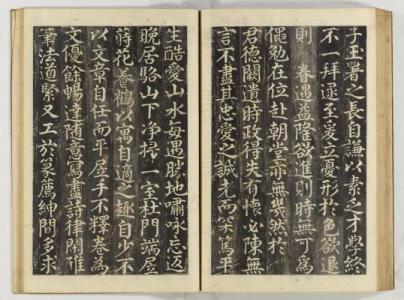 子王署之長自謙以素乏才學終
不一拜遝至爰立憂形於色欲退
則　眷遇益隆欲進則時無可為
僶勉在位赴朝堂亦無幾然於
君德闕遺時政得失有懷必陳無
言不盡其忠愛之誠尤而罙篤平
生酷愛山水每遇勝地嘯咏忘返
晚居駱山下净掃一室杜門端居
蒔花養鶴以寓自適之趣自少不
以文章自任而平居手不釋卷為
文優餘暢達随意寫盡詩律閑雅
筆法遒緊又工於篆薦紳間多求